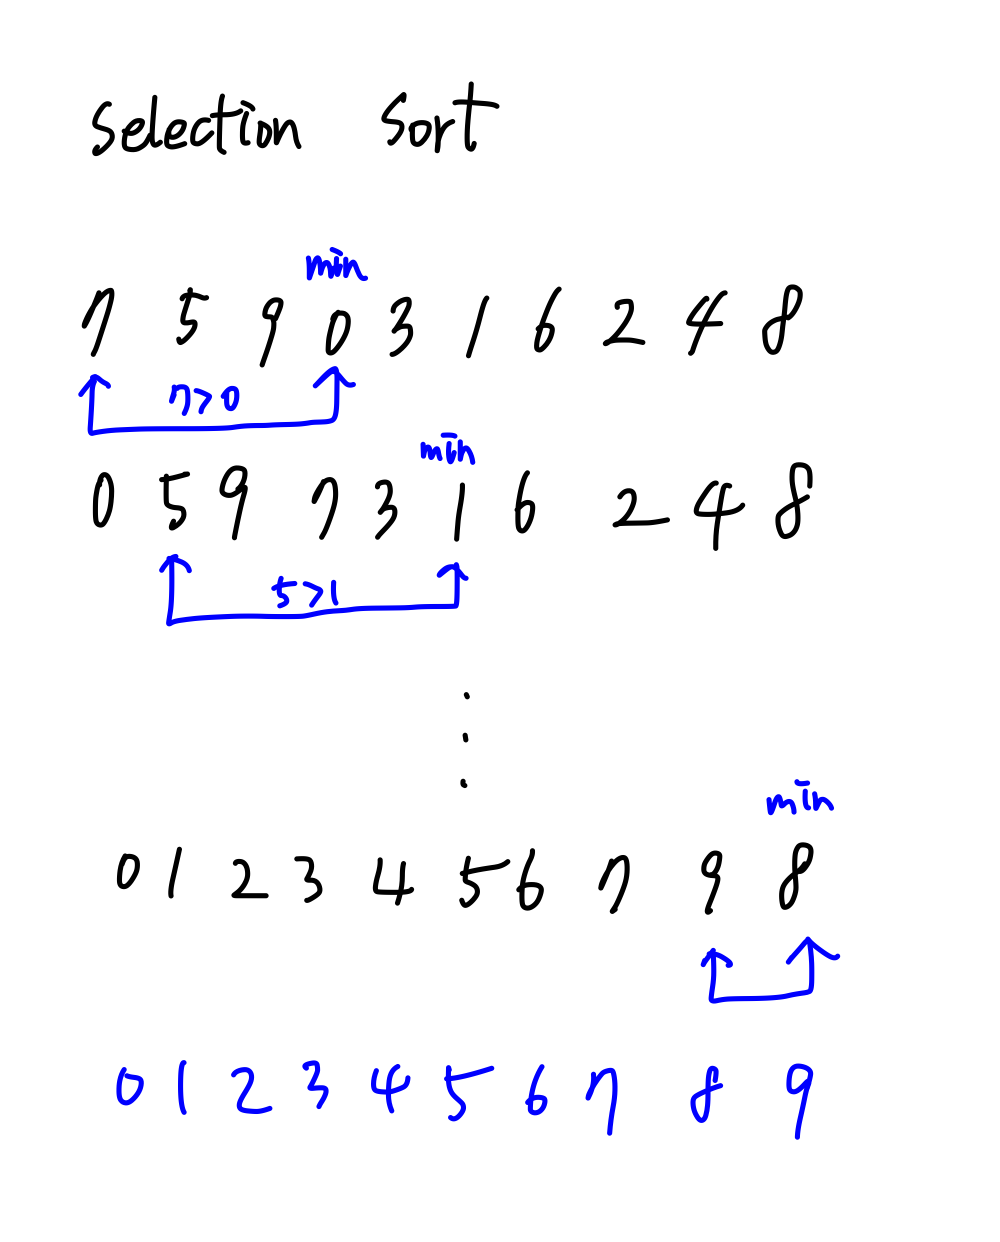 Selection Sort
min
7 5 9 0 3 1 6 2 4 8
7>0
min
0 5 9 7 3 1 6 2 4 8
5>1
.
.
.
min
0 1 2 3 4 5 6 7 9 8
0 1 2 3 4 5 6 7 8 9